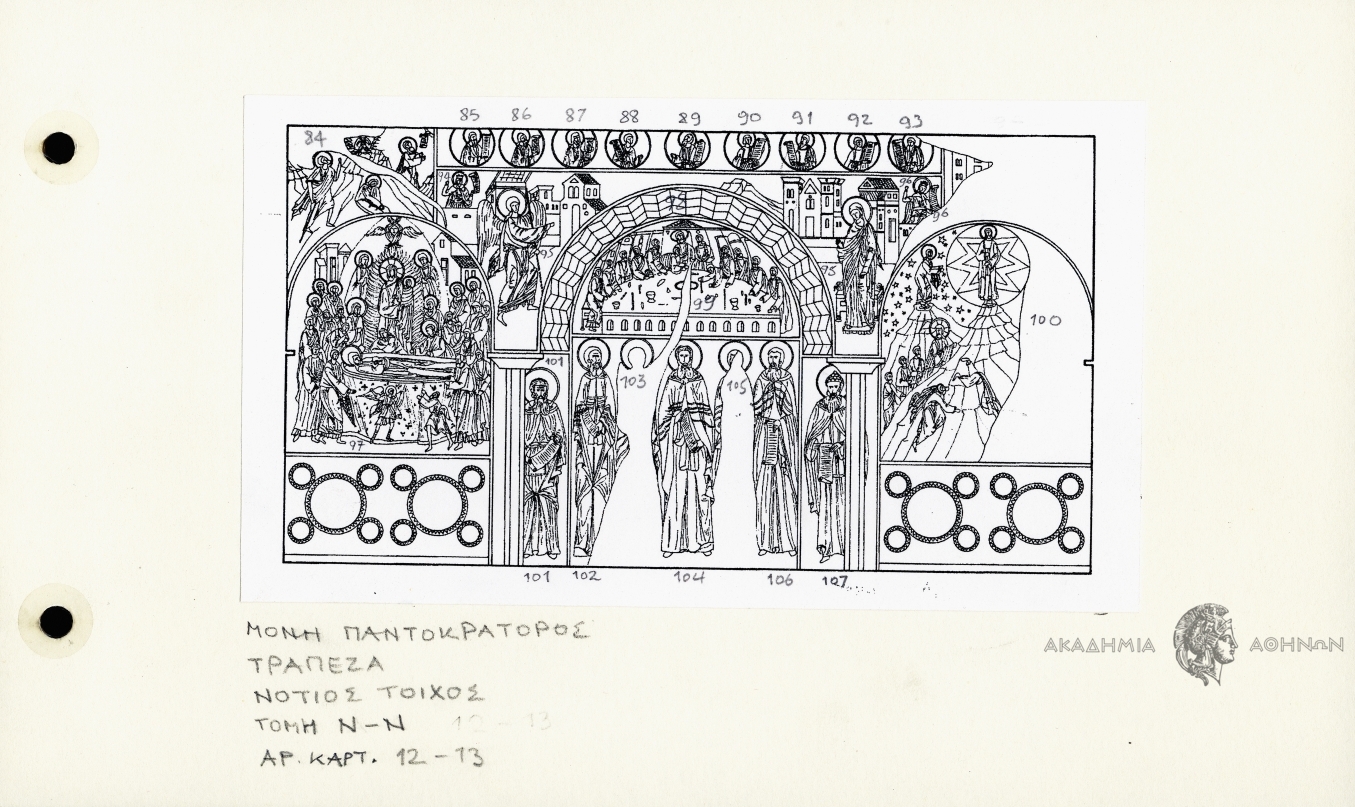 85 86 87 88 89 90 91 92 93
84
94
96
96
98
95
95
99
100
101
103
105
97
101 102 104 106 107
ΜΟΝΗ ΠΑΝΤΟΚΡΑΤΟΡΟΣ
ΤΡΑΠΕΖΑ
ΝΟΤΙΟΣ ΤΟΙΧΟΣ
ΤΟΜΗ Ν-Ν 12-13
ΑΡ. ΚΑΡΤ. 12-13
ΑΚΑΔΗΜΙΑ ΑΘΗΝΩΝ